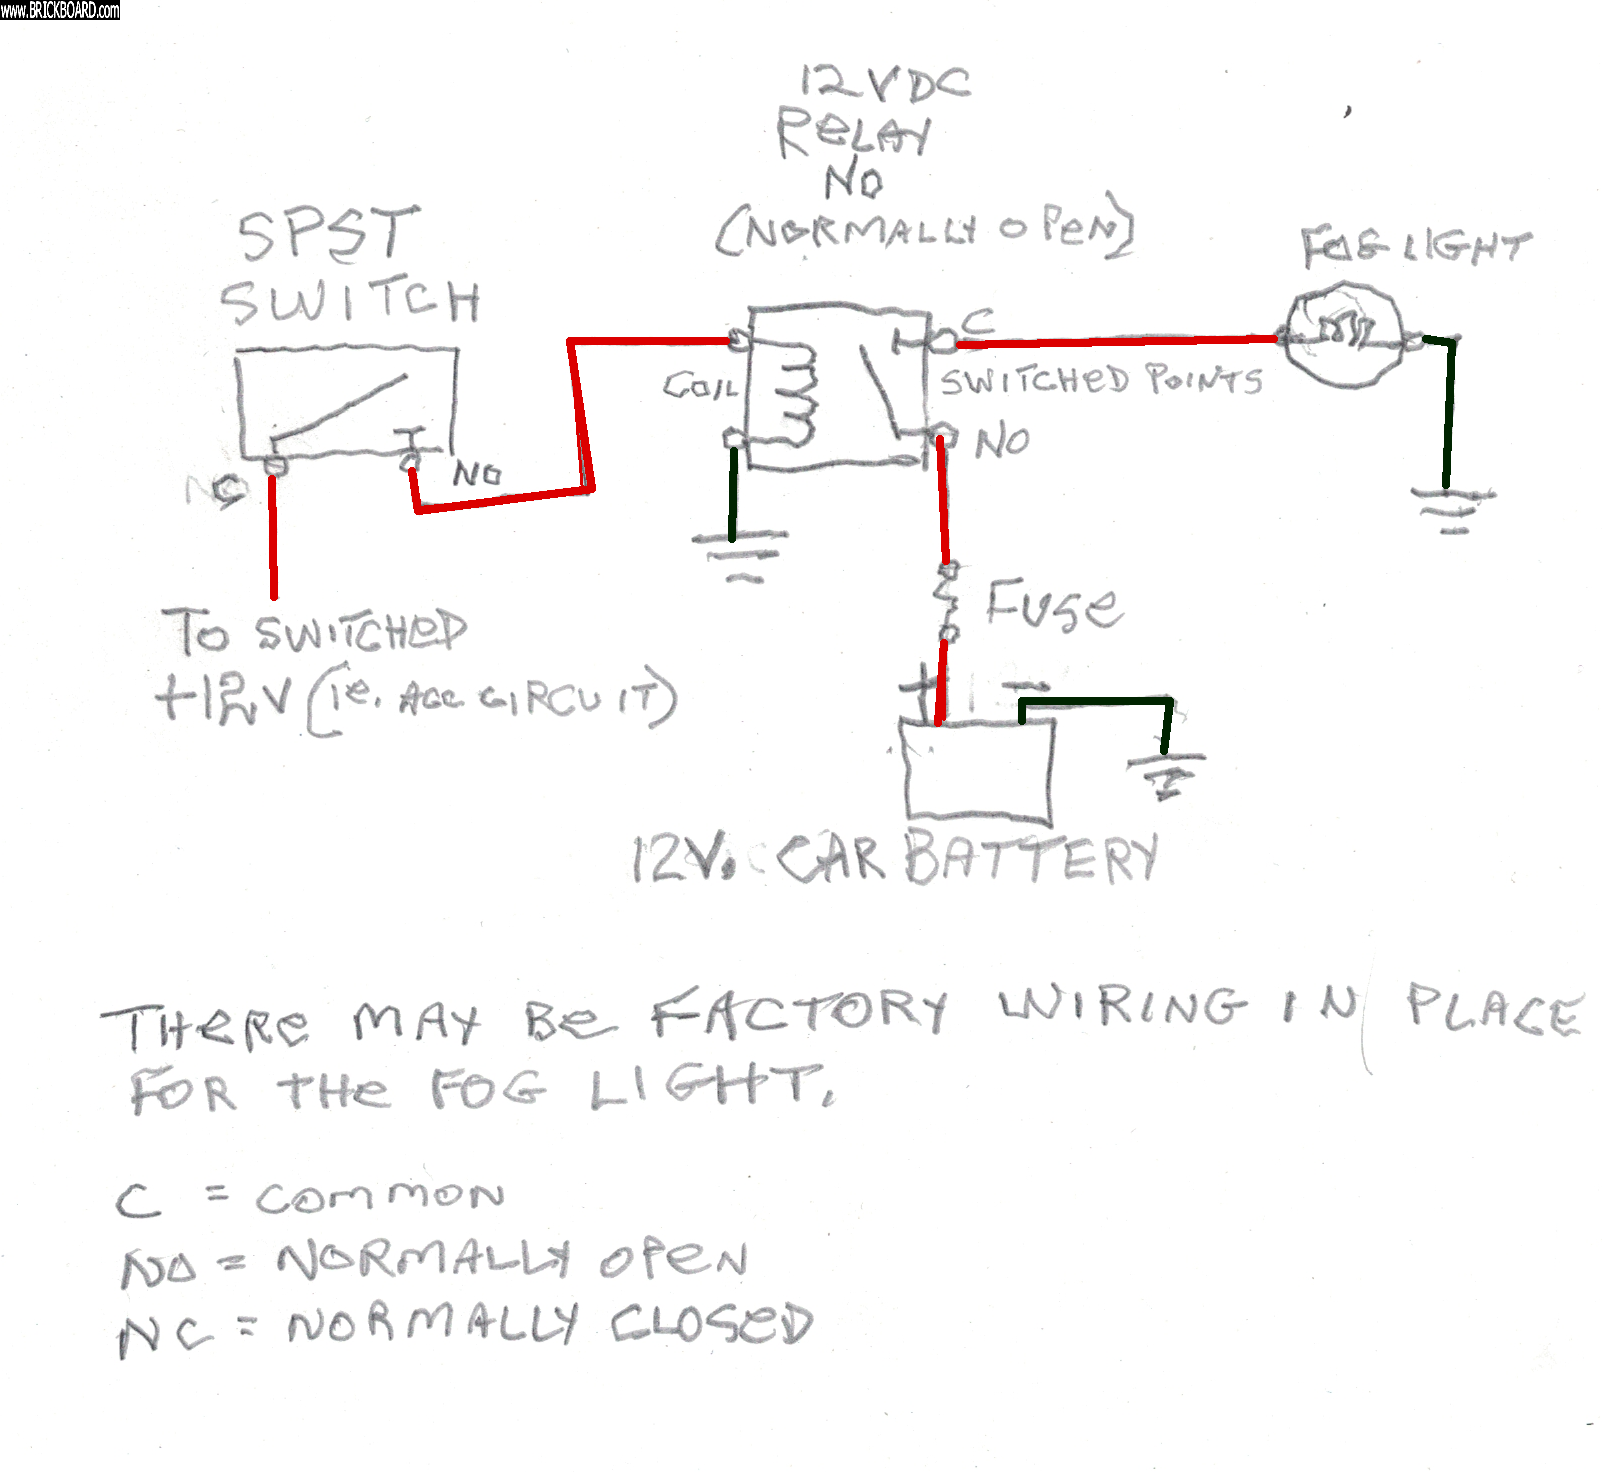 www.BRICKBOARD.com
12VDC
RELAY
NO
(NORMALLY OPEN)
SPST
SWITCH
FOG LIGHT
C
COIL
SWITCHED POINTS
NO
NO
C
TO SWITCHED
+12V (ie. ACC CIRCUIT)
FUSE
+ -
12V. CAR BATTERY
THERE MAY BE FACTORY WIRING IN PLACE
FOR THE FOG LIGHT.
C = COMMON
NO = NORMALLY OPEN
NC = NORMALLY CLOSED